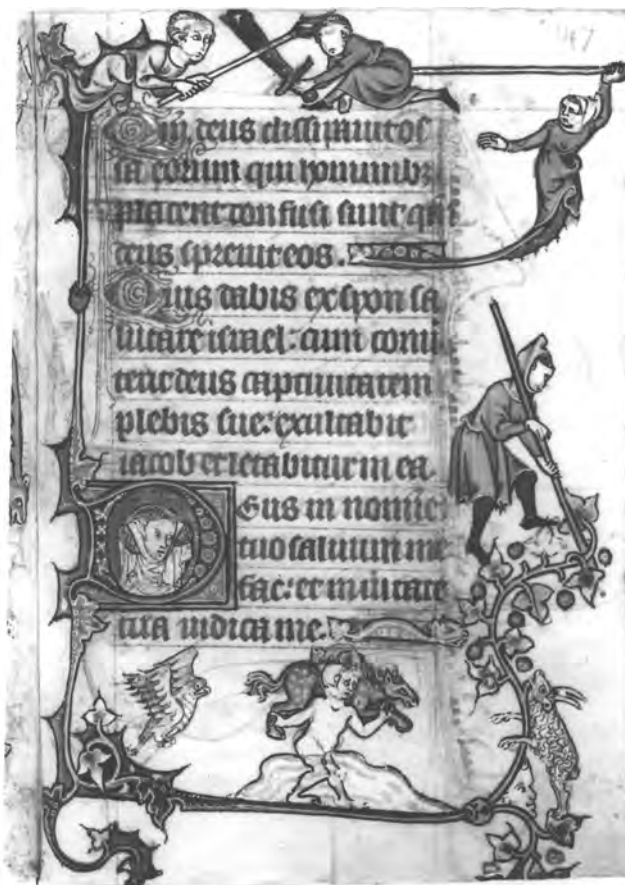 147
Qm deus dissipauit os
sa eorum qui hominibz
placent confusi sunt qm
deus spreuit eos.
Quis dabit ex syon sa
lutare israel: cum conu
terit deus captiuitatem
plebis sue: exultabit
iacob et letabitur in ea.
Deus in nomine
tuo saluum me
fac: et in uirtute
tua iudica me.